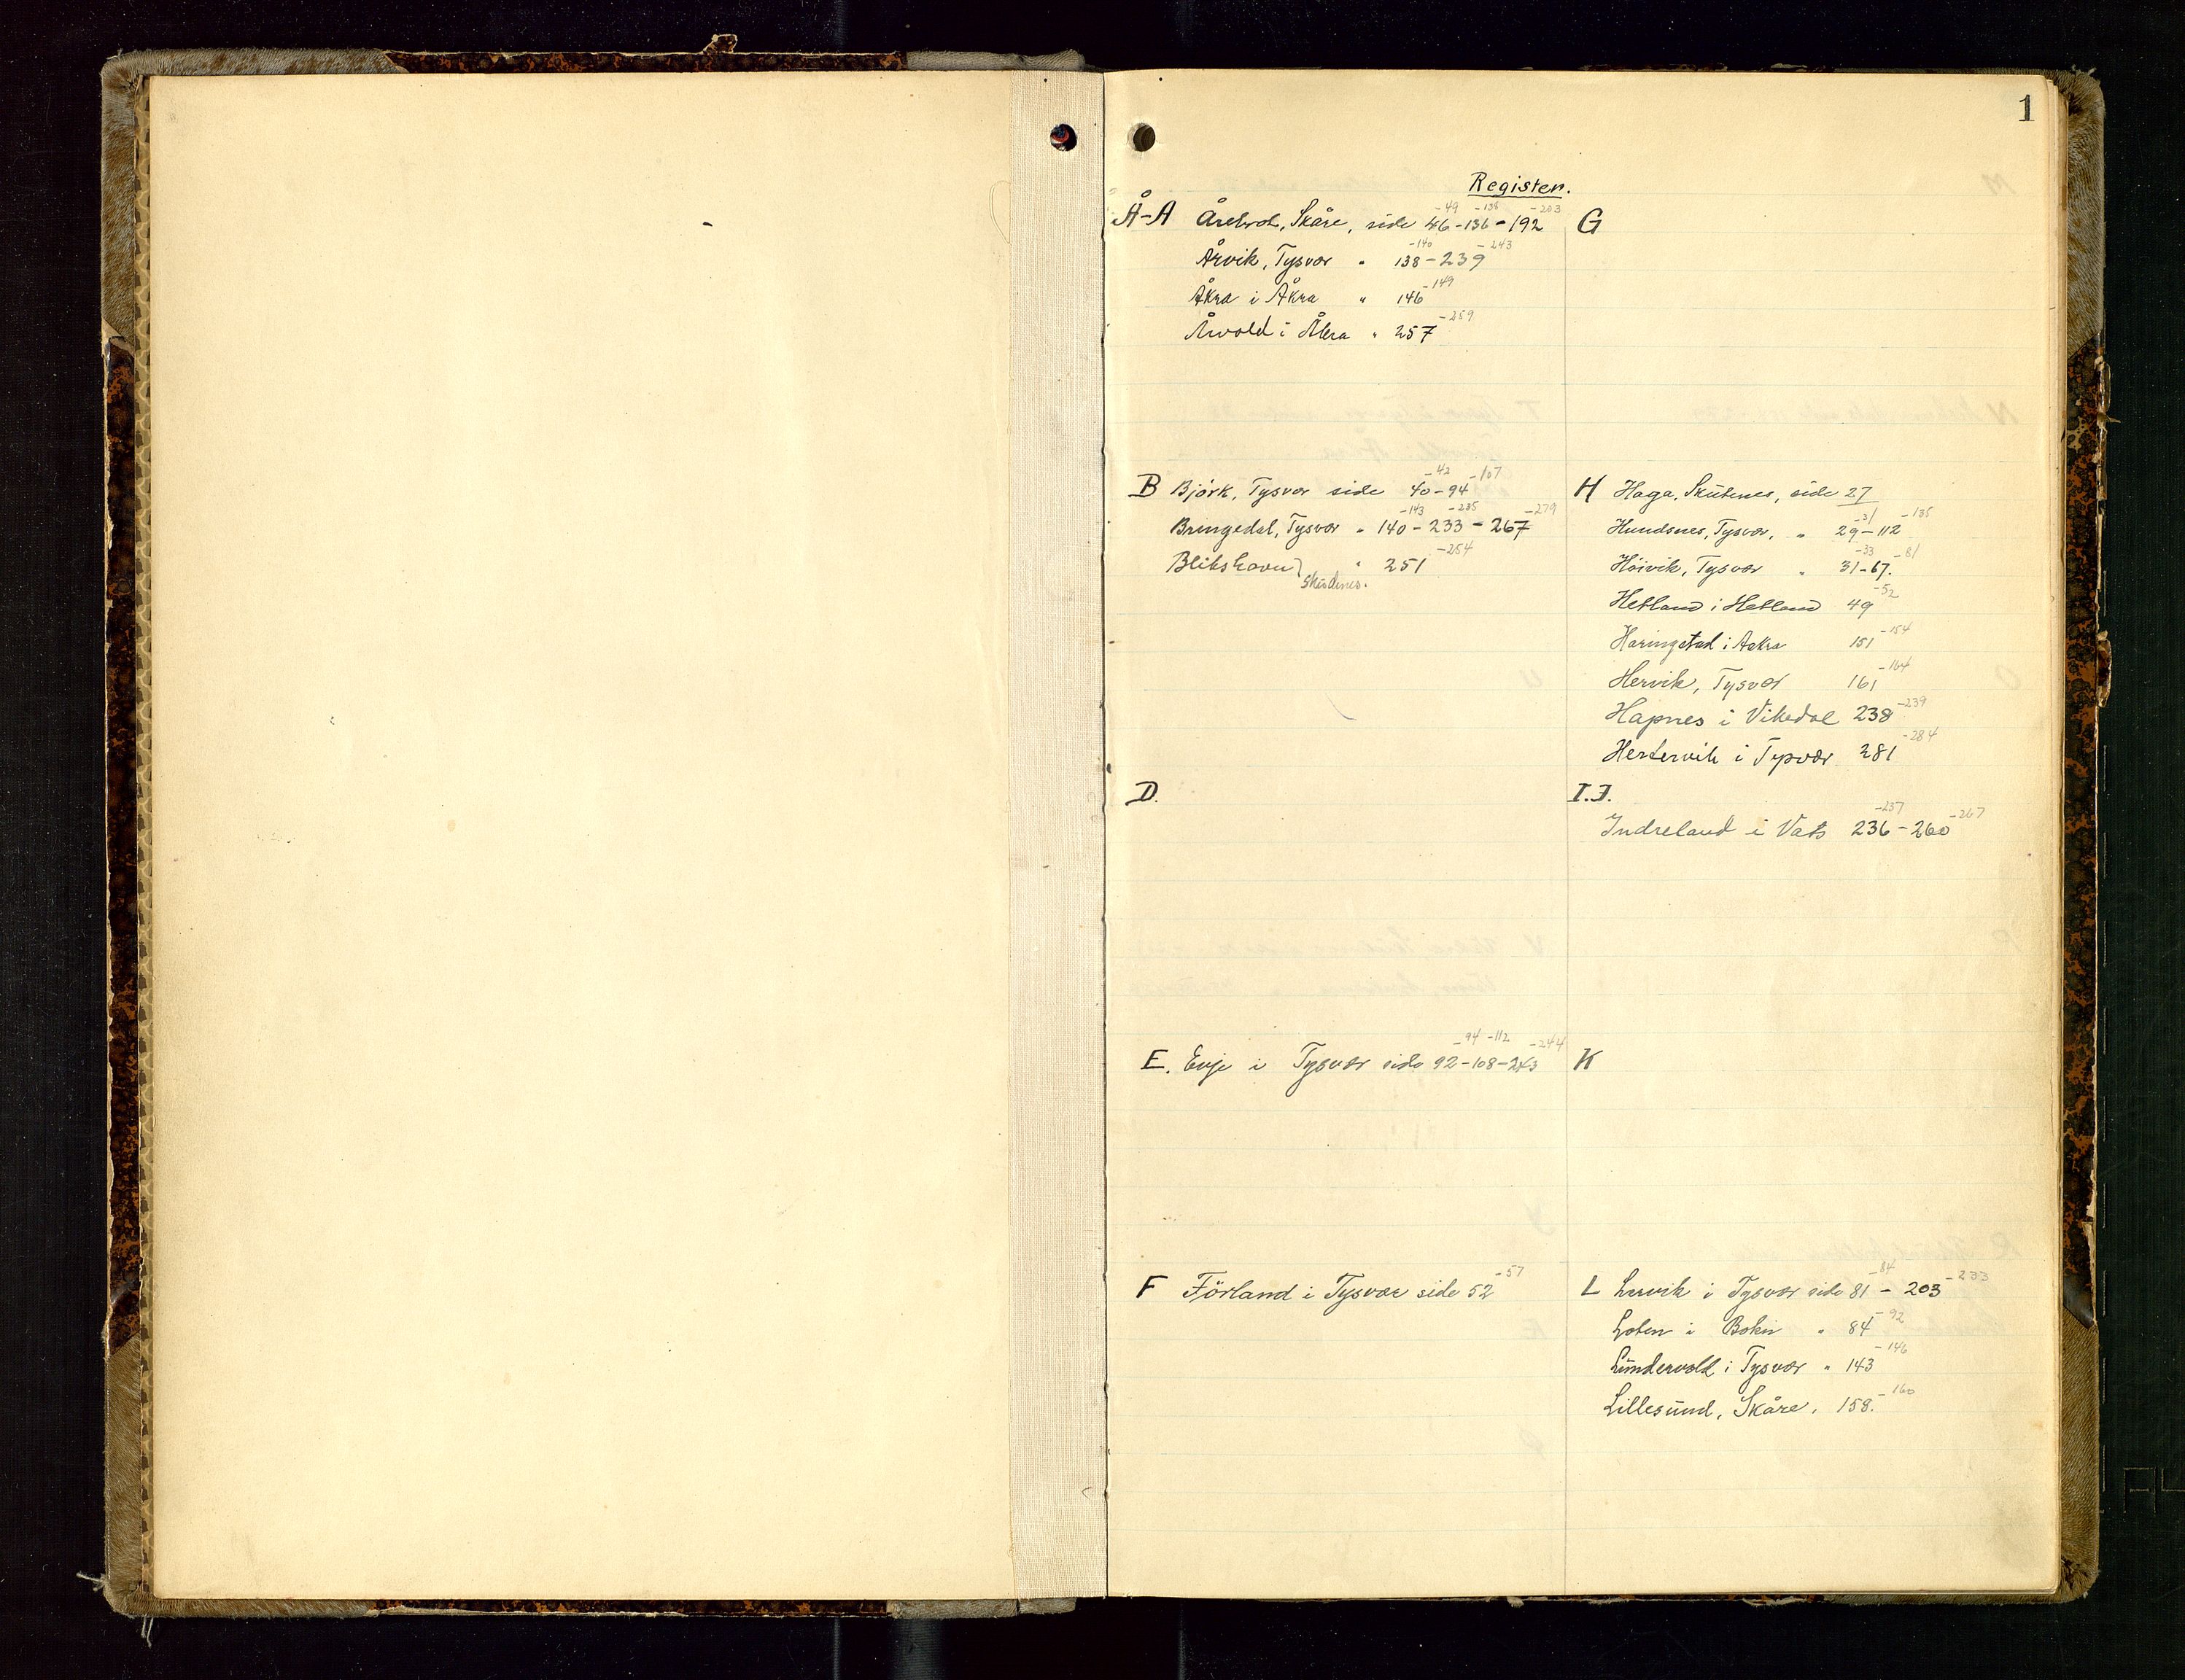 1
Register.
Å-A Årebrot, Skåre, side 46-136-192
-49 -138 -203
Årvik, Tysvær " 138-239
-140 -243
Åkra i Åkra " 146 -149
Årvold i Åkra " 257 -259
B Bjørk, Tysvær side 40-94
-42 -107
Bringedal, Tysvær " 140-233-267
-143 -235 -279
Blikshavn " 251 -254
Skudenes.
D.
E. Evje i Tysvær side 92-108-243
-94 -112 -244
F Förland i Tysvær side 52 -57
G
H Haga, Skutenes, side 27
Hundsnes, Tysvær, " 29-112
-31 -135
Höivik, Tysvær " 31-67.
-33 -81
Hetland i Hetland 49 -52
Haringstad i Aakra 151 -154
Hervik, Tysvær 161 -164
Hapnes i Vikedal 238 -239
Hestervik i Tysvær 281 -284
I.J.
Indreland i Vats 236-260
-237 -267
K
L Lervik i Tysvær side 81 - 203
-84 -233
Loten i Bokn " 84 -92
Lündervold i Tysvær " 143 -146
Lillesünd, Skåre, 158. -160